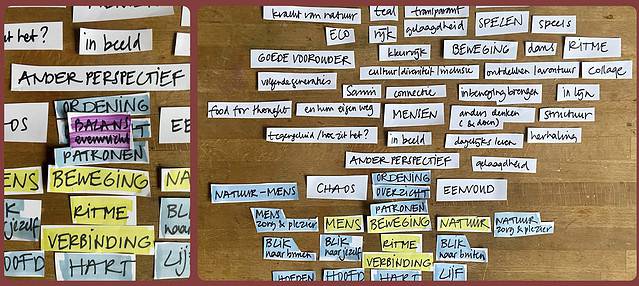 et het?
in beeld
ANDER PERSPECTIEF
ORDENING
OS
BALANS
T
EE
evenwicht
PATRONEN
ENS
BEWEGING
NA
K
RITME
BLIK
jezelf
naar
VERBINDING
OOFD
HART
LIJF
kracht van natuur
teal
transparant
ECO
rijk
gelaagdheid
SPELEN
speels
GOEDE VOOROUDER
kleurrijk
BEWEGING
dans
RITME
volgende generaties
cultuur/diversiteit/inclusie
ontdekken/avontuur
collage
Samen
connectie
inbeweging brengen
in lijn
food for thought
en hum eigen weg
MENSEN
anders denken
(& doen)
structuur
tegengeluid/hoe zit het?
in beeld
dagelijks leven
herhaling
ANDER PERSPECTIEF
gelaagdheid
NATUUR-MENS
CHAOS
ORDENING
OVERZICHT
EENVOUD
PATRONEN
MENS
zorg & plezier
MENS
BEWEGING
NATUUR
NATUUR
zorg & plezier
BLIK
naar binnen
BLIK
naar jezelf
RITME
BLIK
naar buiten
VERBINDING
HOEDEN
HOOFD
HART
LIJF